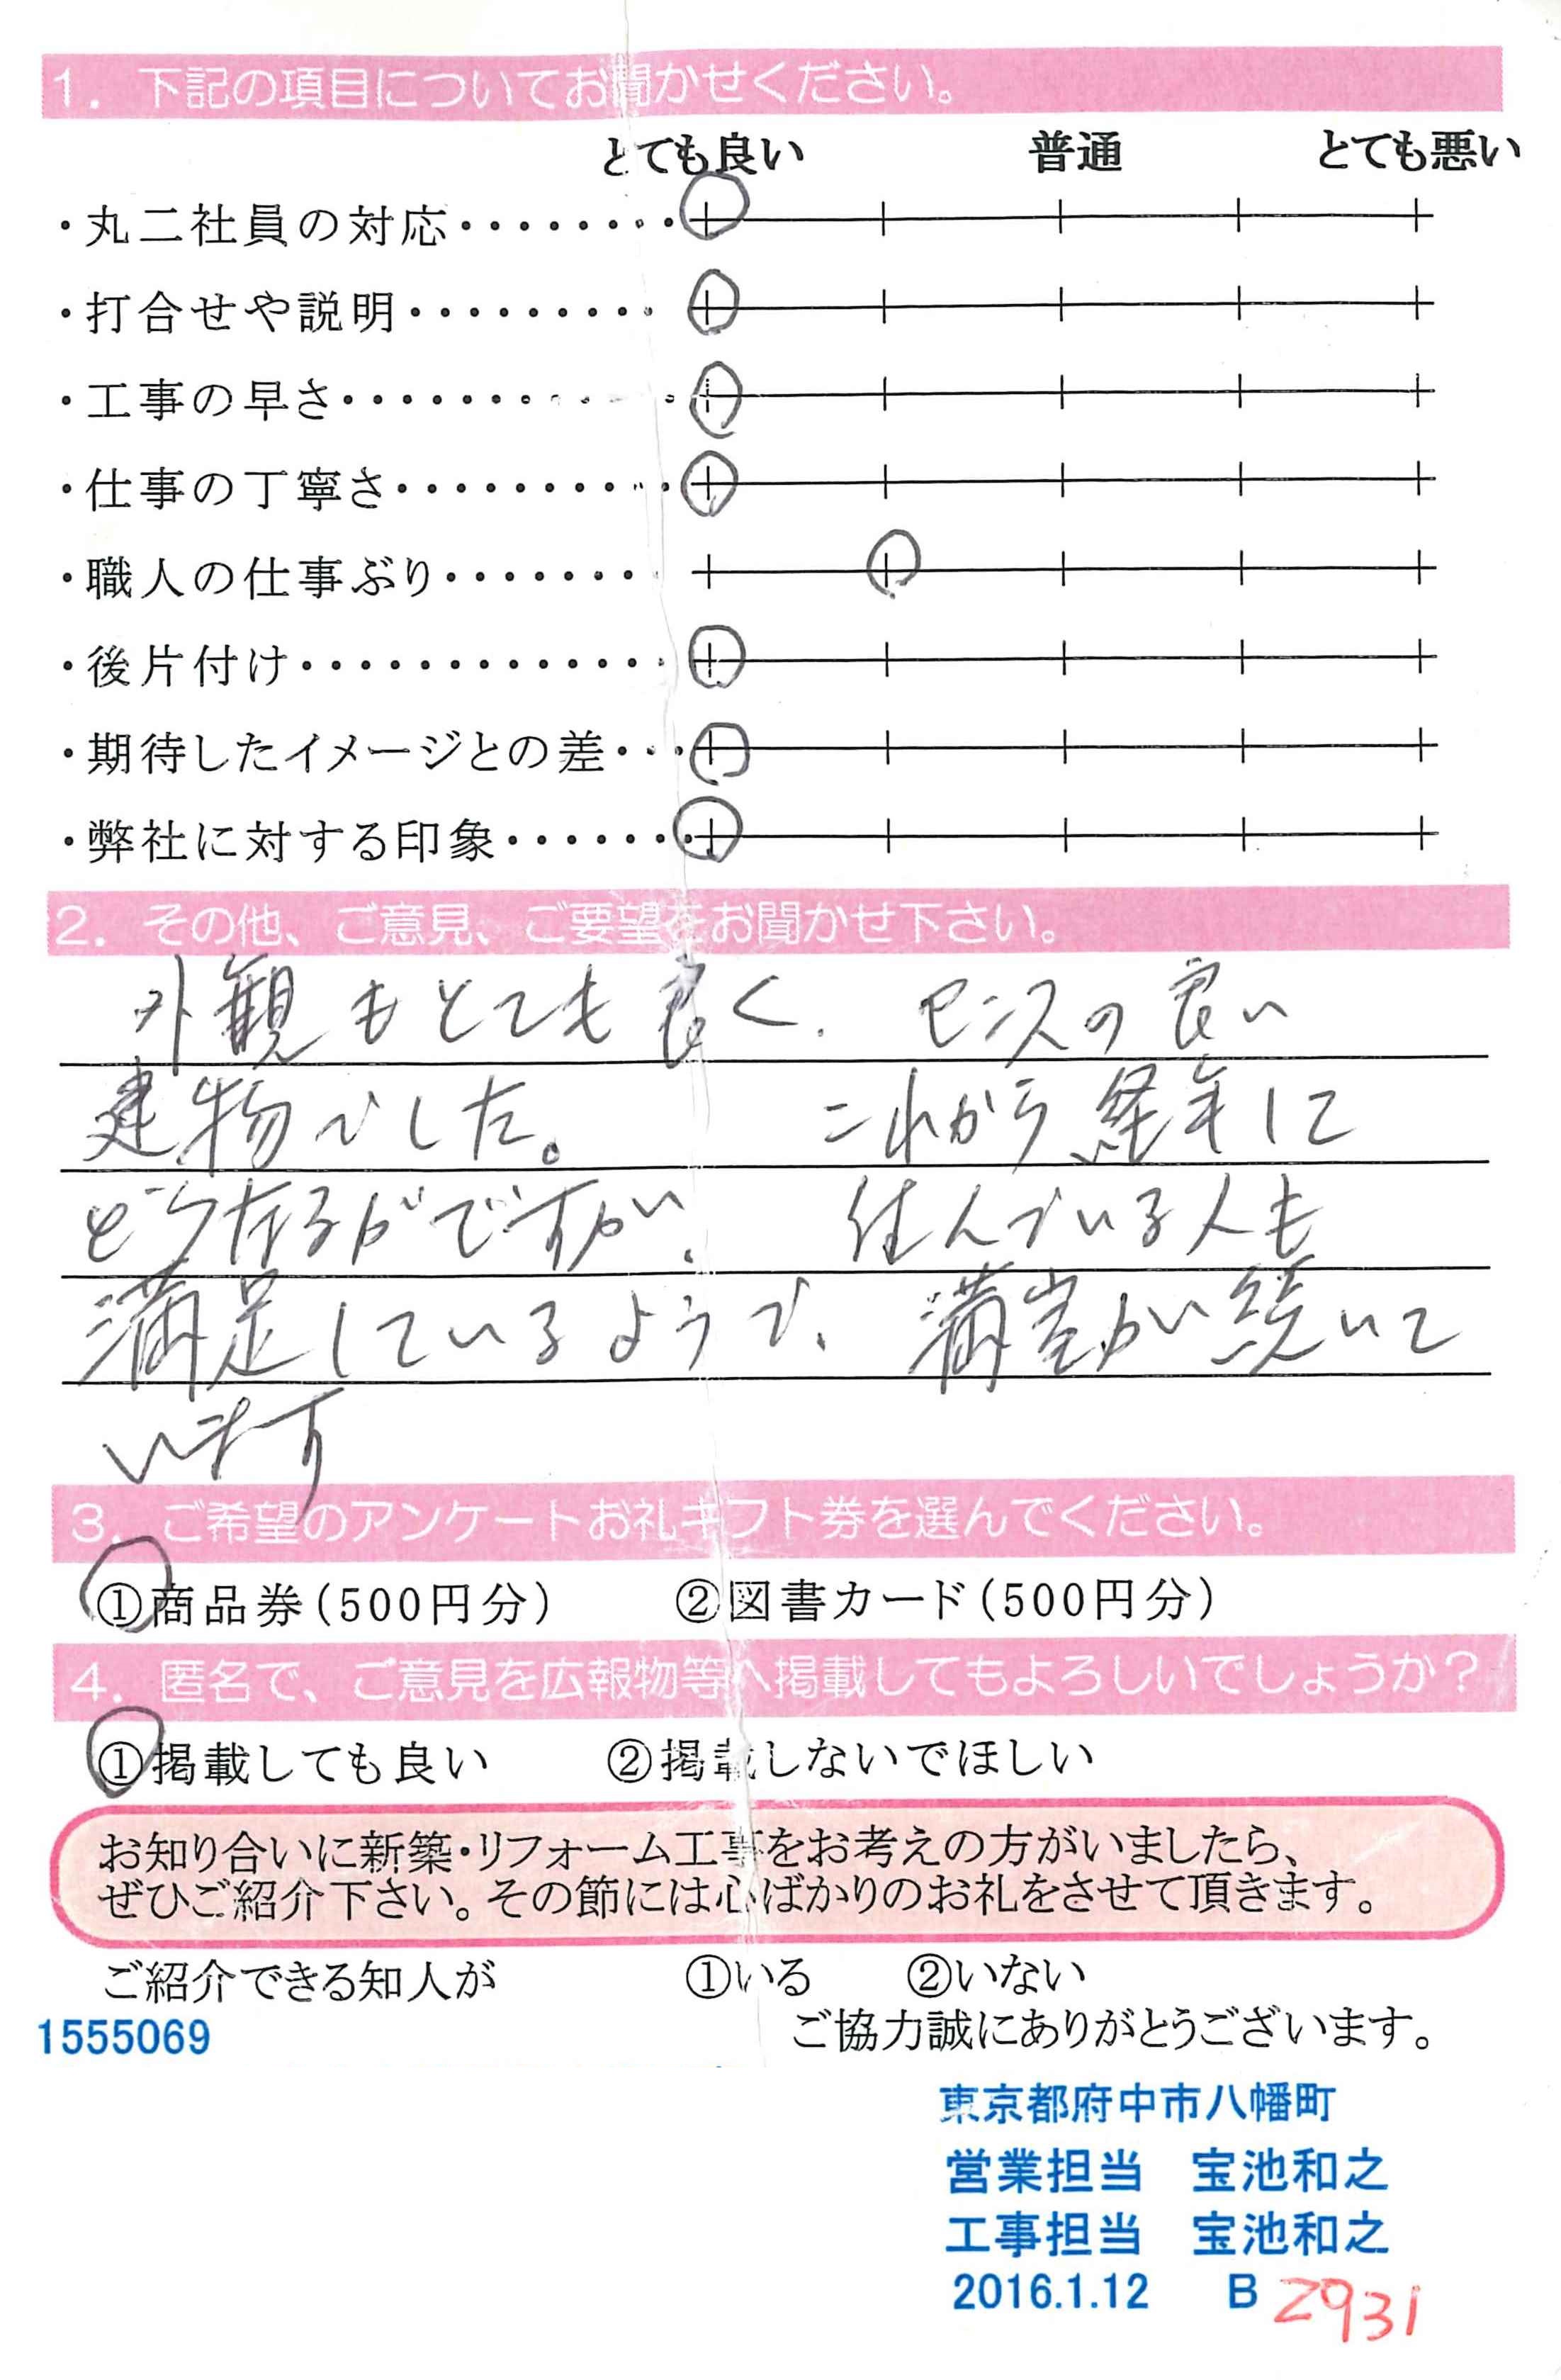 1. 下記の項目についてお聞かせください。
とても良い 普通 とても悪い
・丸二社員の対応・・・・・・・・
・打合せや説明・・・・・・・・・
・工事の早さ・・・・・・・・・・・・
・仕事の丁寧さ・・・・・・・・・・
・職人の仕事ぶり・・・・・・・
・後片付け・・・・・・・・・・・・・
・期待したイメージとの差・・・
・弊社に対する印象・・・・・・
2. その他、ご意見、ご要望をお聞かせ下さい。
外観もとても良く、センスの良い
建物でした。 これから経年して
どうなるかですが、 住んでいる人も
満足しているようで、満室が続いて
います
3. ご希望のアンケートお礼ギフト券を選んでください。
①商品券(500円分) ②図書カード(500円分)
4. 匿名で、ご意見を広報物等へ掲載してもよろしいでしょうか?
①掲載しても良い ②掲載しないでほしい
お知り合いに新築・リフォーム工事をお考えの方がいましたら、
ぜひご紹介下さい。その節には心ばかりのお礼をさせて頂きます。
ご紹介できる知人が ①いる ②いない
1555069 ご協力誠にありがとうございます。
東京都府中市八幡町
営業担当 宝池和之
工事担当 宝池和之
2016.1.12 B 2931